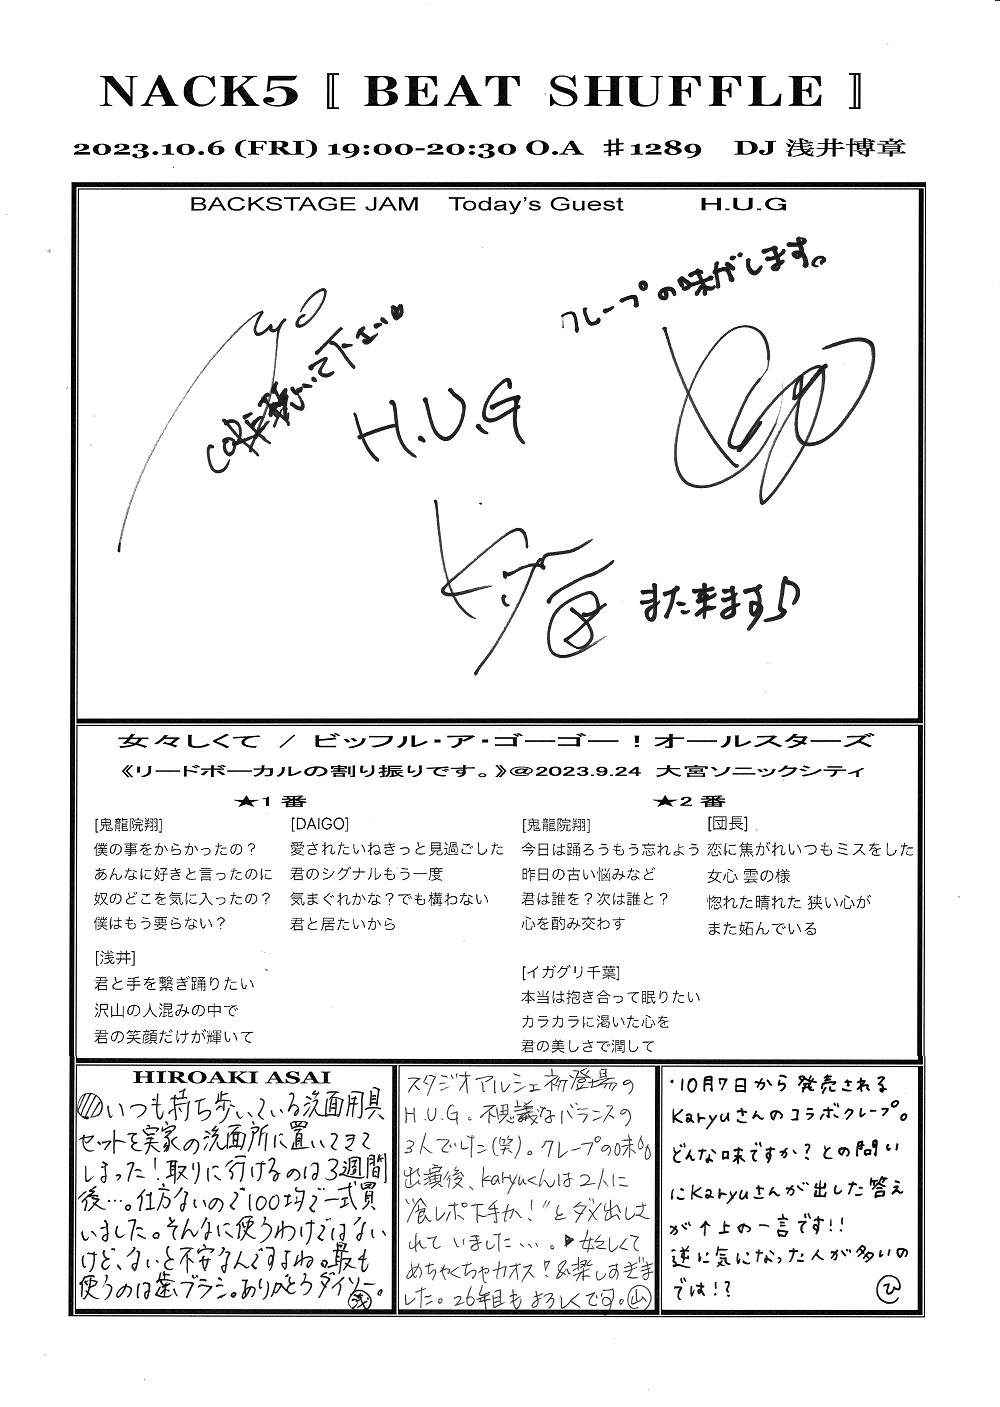 NACK5 〚 BEAT SHUFFLE 〛
2023.10.6 (FRI) 19:00-20:30 O.A ♯1289 DJ 浅井博章
BACKSTAGE JAM Today's Guest H.U.G
クレープの味がします。
聴いて下さい
H.U.G
また来ます♪
女々しくて / ビッフル・ア・ゴーゴー！オールスターズ
《リードボーカルの割り振りです。》@2023.9.24 大宮ソニックシティ
★1 番
[鬼龍院翔]
僕の事をからかったの？
あんなに好きと言ったのに
奴のどこを気に入ったの？
僕はもう要らない？
[DAIGO]
愛されたいねきっと見過ごした
君のシグナルもう一度
気まぐれかな？でも構わない
君と居たいから
[浅井]
君と手を繋ぎ踊りたい
沢山の人混みの中で
君の笑顔だけが輝いて
★2 番
[鬼龍院翔]
今日は踊ろうもう忘れよう
昨日の古い悩みなど
君は誰を？次は誰と？
心を酌み交わす
[団長]
恋に焦がれいつもミスをした
女心 雲の様
惚れた晴れた 狭い心が
また妬んでいる
[イガグリ千葉]
本当は抱き合って眠りたい
カラカラに渇いた心を
君の美しさで潤して
HIROAKI ASAI
いつも持ち歩いている洗面用具
セットを実家の洗面所に置いてきて
しまった！取りに行けるのは3週間
後…。仕方ないので100均で一式買
いました。そんなに使うわけではない
けど、ないと不安なんですよね。最も
使うのは歯ブラシ。ありがとうダイソー。
浅
スタジオアルシェ初登場の
H.U.G. 不思議なバランスの
3人でした(笑)。クレープの味の
出演後、Karyuくんは2人に
"食レポ下手か！"とダメ出しさ
れていました…。▶女々しくて
めちゃくちゃカオス！&楽しすぎま
した。26年目もよろしくです。山
・10月7日から発売される
Karyuさんのコラボクレープ。
どんな味ですか？との問い
にKaryuさんが出した答え
が↑上の一言です!!
逆に気になった人が多いの
では!? ひ